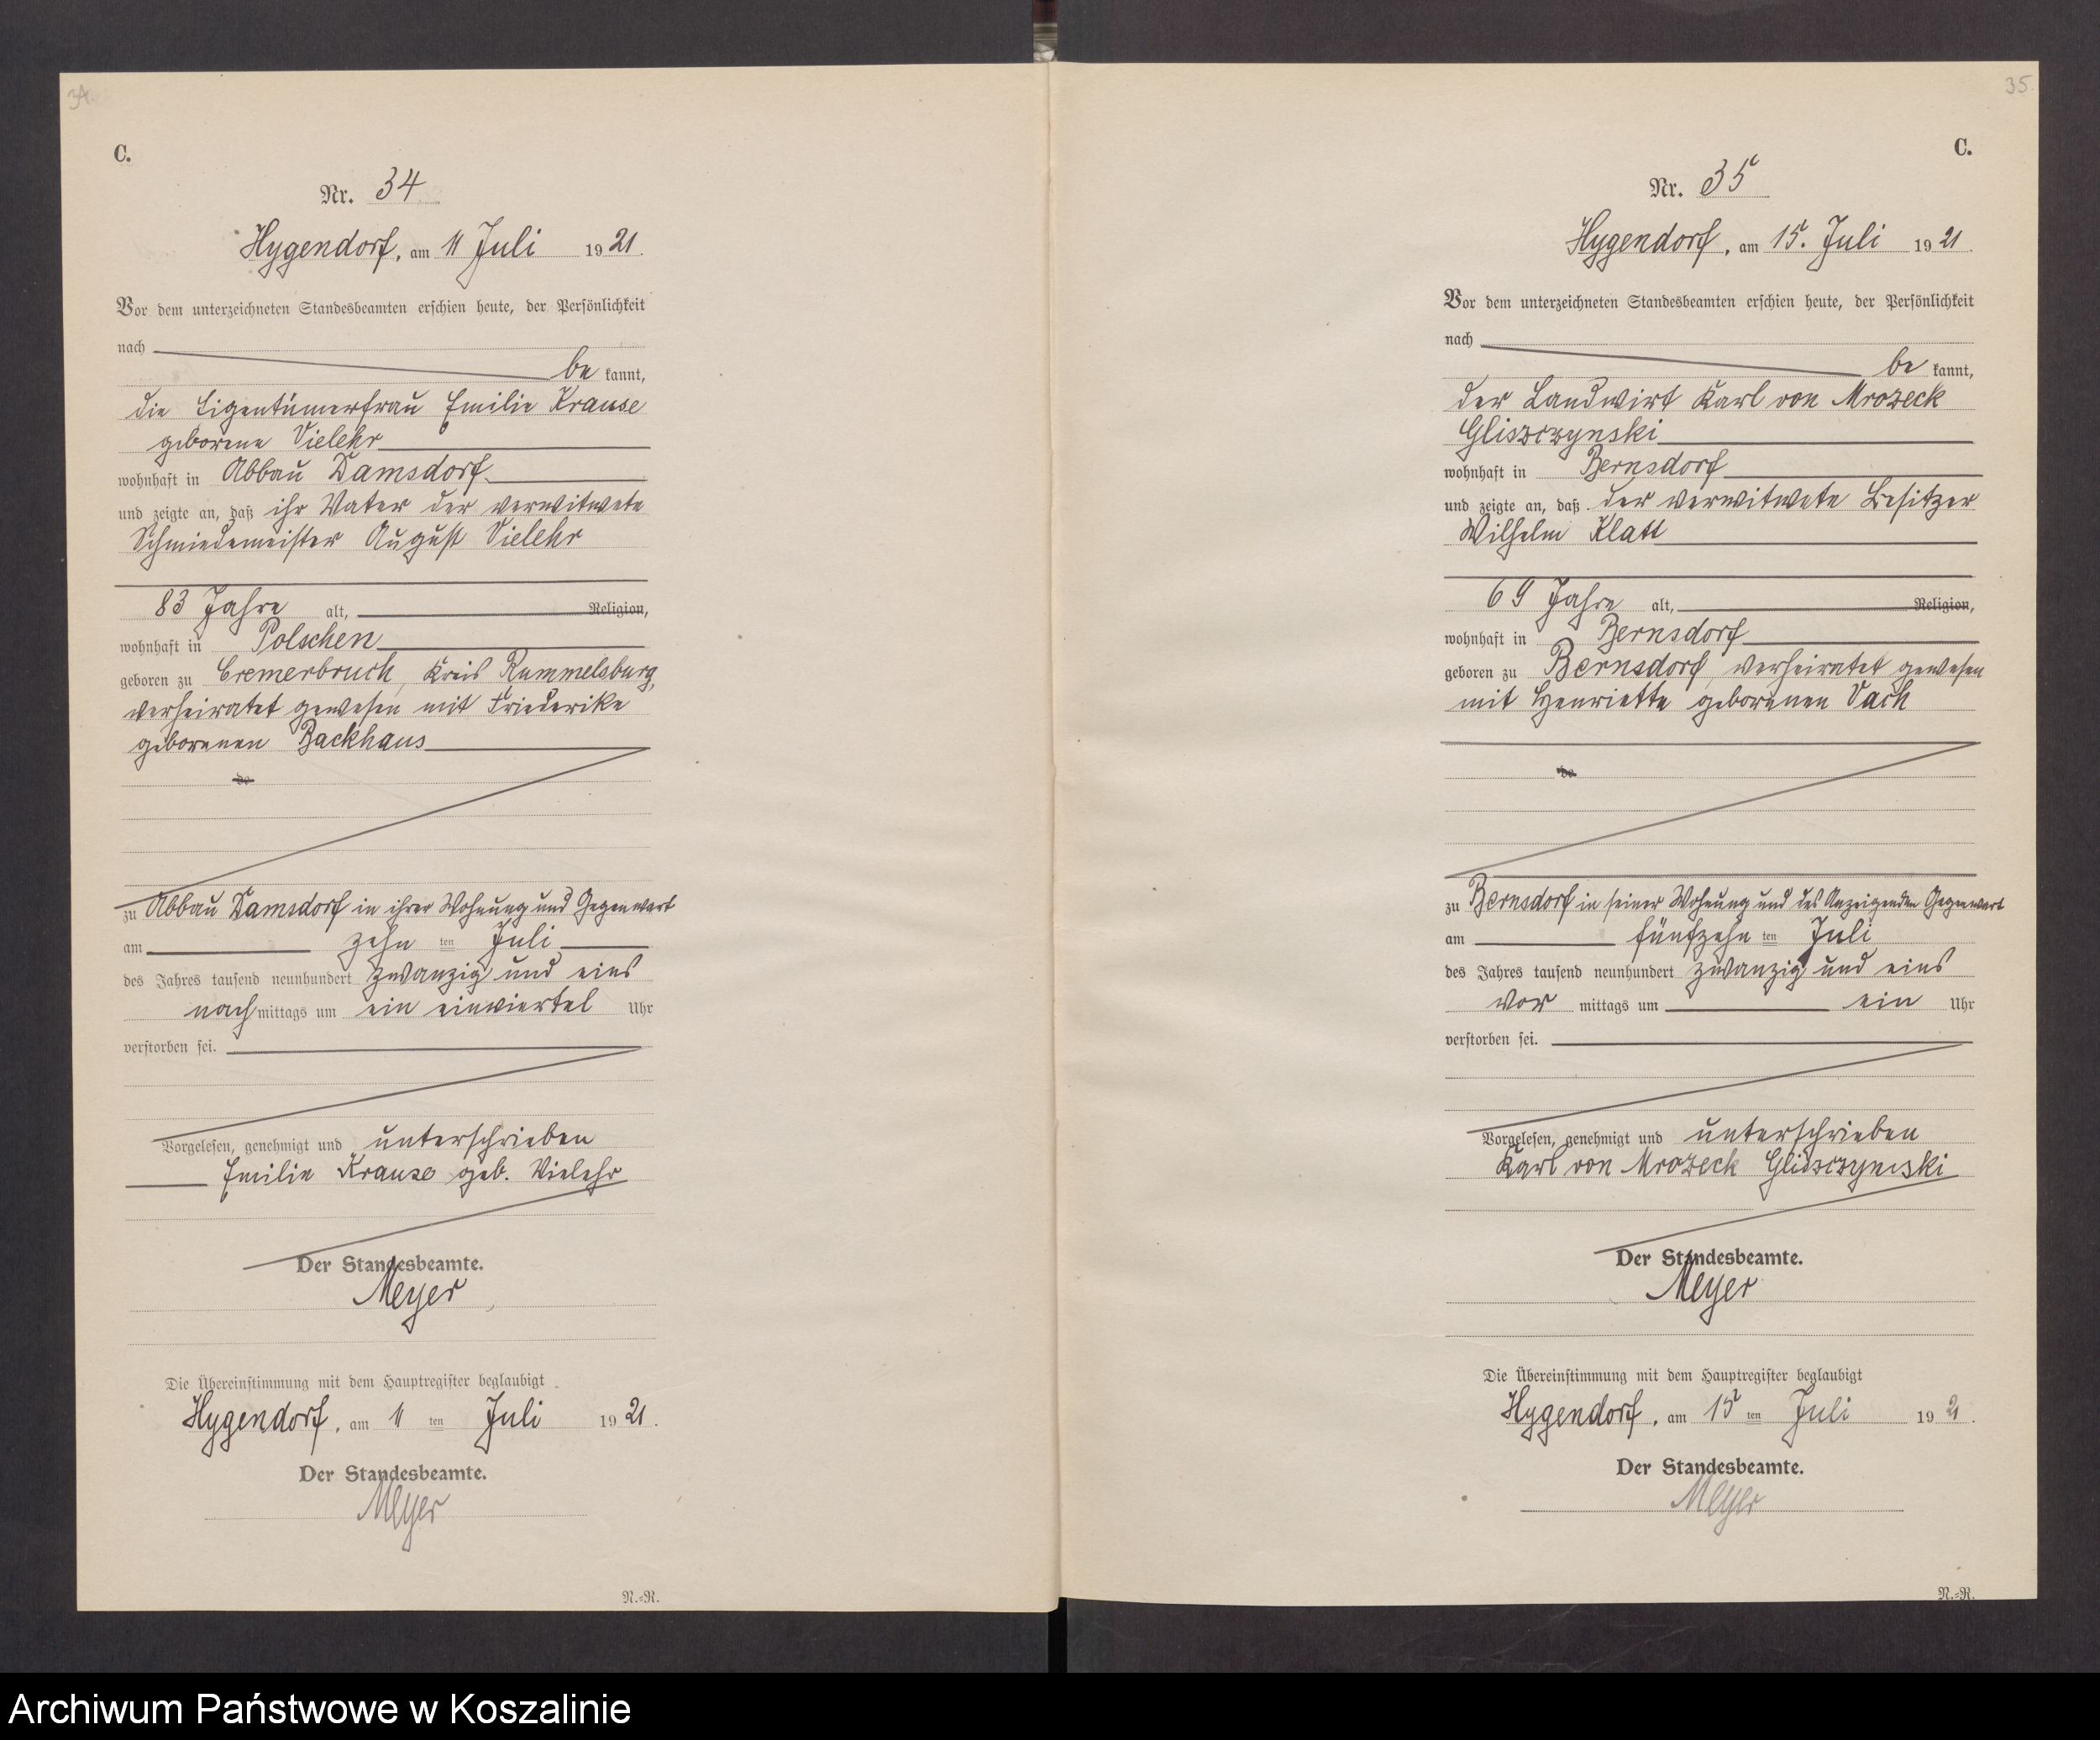 34.
C.
Nr. 34
Hygendorf, am 11 Juli 1921.
Vor dem unterzeichneten Standesbeamten erschien heute, der Persönlichkeit
nach
be kannt,
die Eigentümerfrau Emilie Krause
geborene Vielehr
wohnhaft in Abbau Damsdorf.
und zeigte an, daß ihr Vater der verwitwete
Schmiedemeister August Vielehr
83 Jahre alt, Religion,
wohnhaft in Polschen
geboren zu Cremerbruch, Kreis Rummelsburg,
verheiratet gewesen mit Friederike
geborenen Backhaus
de
zu Abbau Damsdorf in ihrer Wohnung und Gegenwart
am zehn ten Juli
des Jahres tausend neunhundert zwanzig und eins
nach mittags um ein einviertel Uhr
verstorben sei.
Vorgelesen, genehmigt und unterschrieben
Emilie Krause geb. Vielehr
Der Standesbeamte.
Meyer
Die Übereinstimmung mit dem Hauptregister beglaubigt
Hygendorf, am 11 ten Juli 1921.
Der Standesbeamte.
Meyer
N.=R.
35.
C.
Nr. 35
Hygendorf, am 15. Juli 1921.
Vor dem unterzeichneten Standesbeamten erschien heute, der Persönlichkeit
nach
be kannt,
der Landwirt Karl von Mrozeck
Gliszczynski
wohnhaft in Bernsdorf
und zeigte an, daß der verwitwete Besitzer
Wilhelm Klatt
69 Jahre alt, Religion,
wohnhaft in Bernsdorf
geboren zu Bernsdorf, verheiratet gewesen
mit Henriette geborenen Vach
de
zu Bernsdorf in seiner Wohnung und des Anzeigenden Gegenwart
am fünfzehn ten Juli
des Jahres tausend neunhundert zwanzig und eins
vor mittags um ein Uhr
verstorben sei.
Vorgelesen, genehmigt und unterschrieben
Karl von Mrozeck Gliszczynski
Der Standesbeamte.
Meyer
Die Übereinstimmung mit dem Hauptregister beglaubigt
Hygendorf, am 15 ten Juli 1921.
Der Standesbeamte.
Meyer
N.=R.
Archiwum Państwowe w Koszalinie